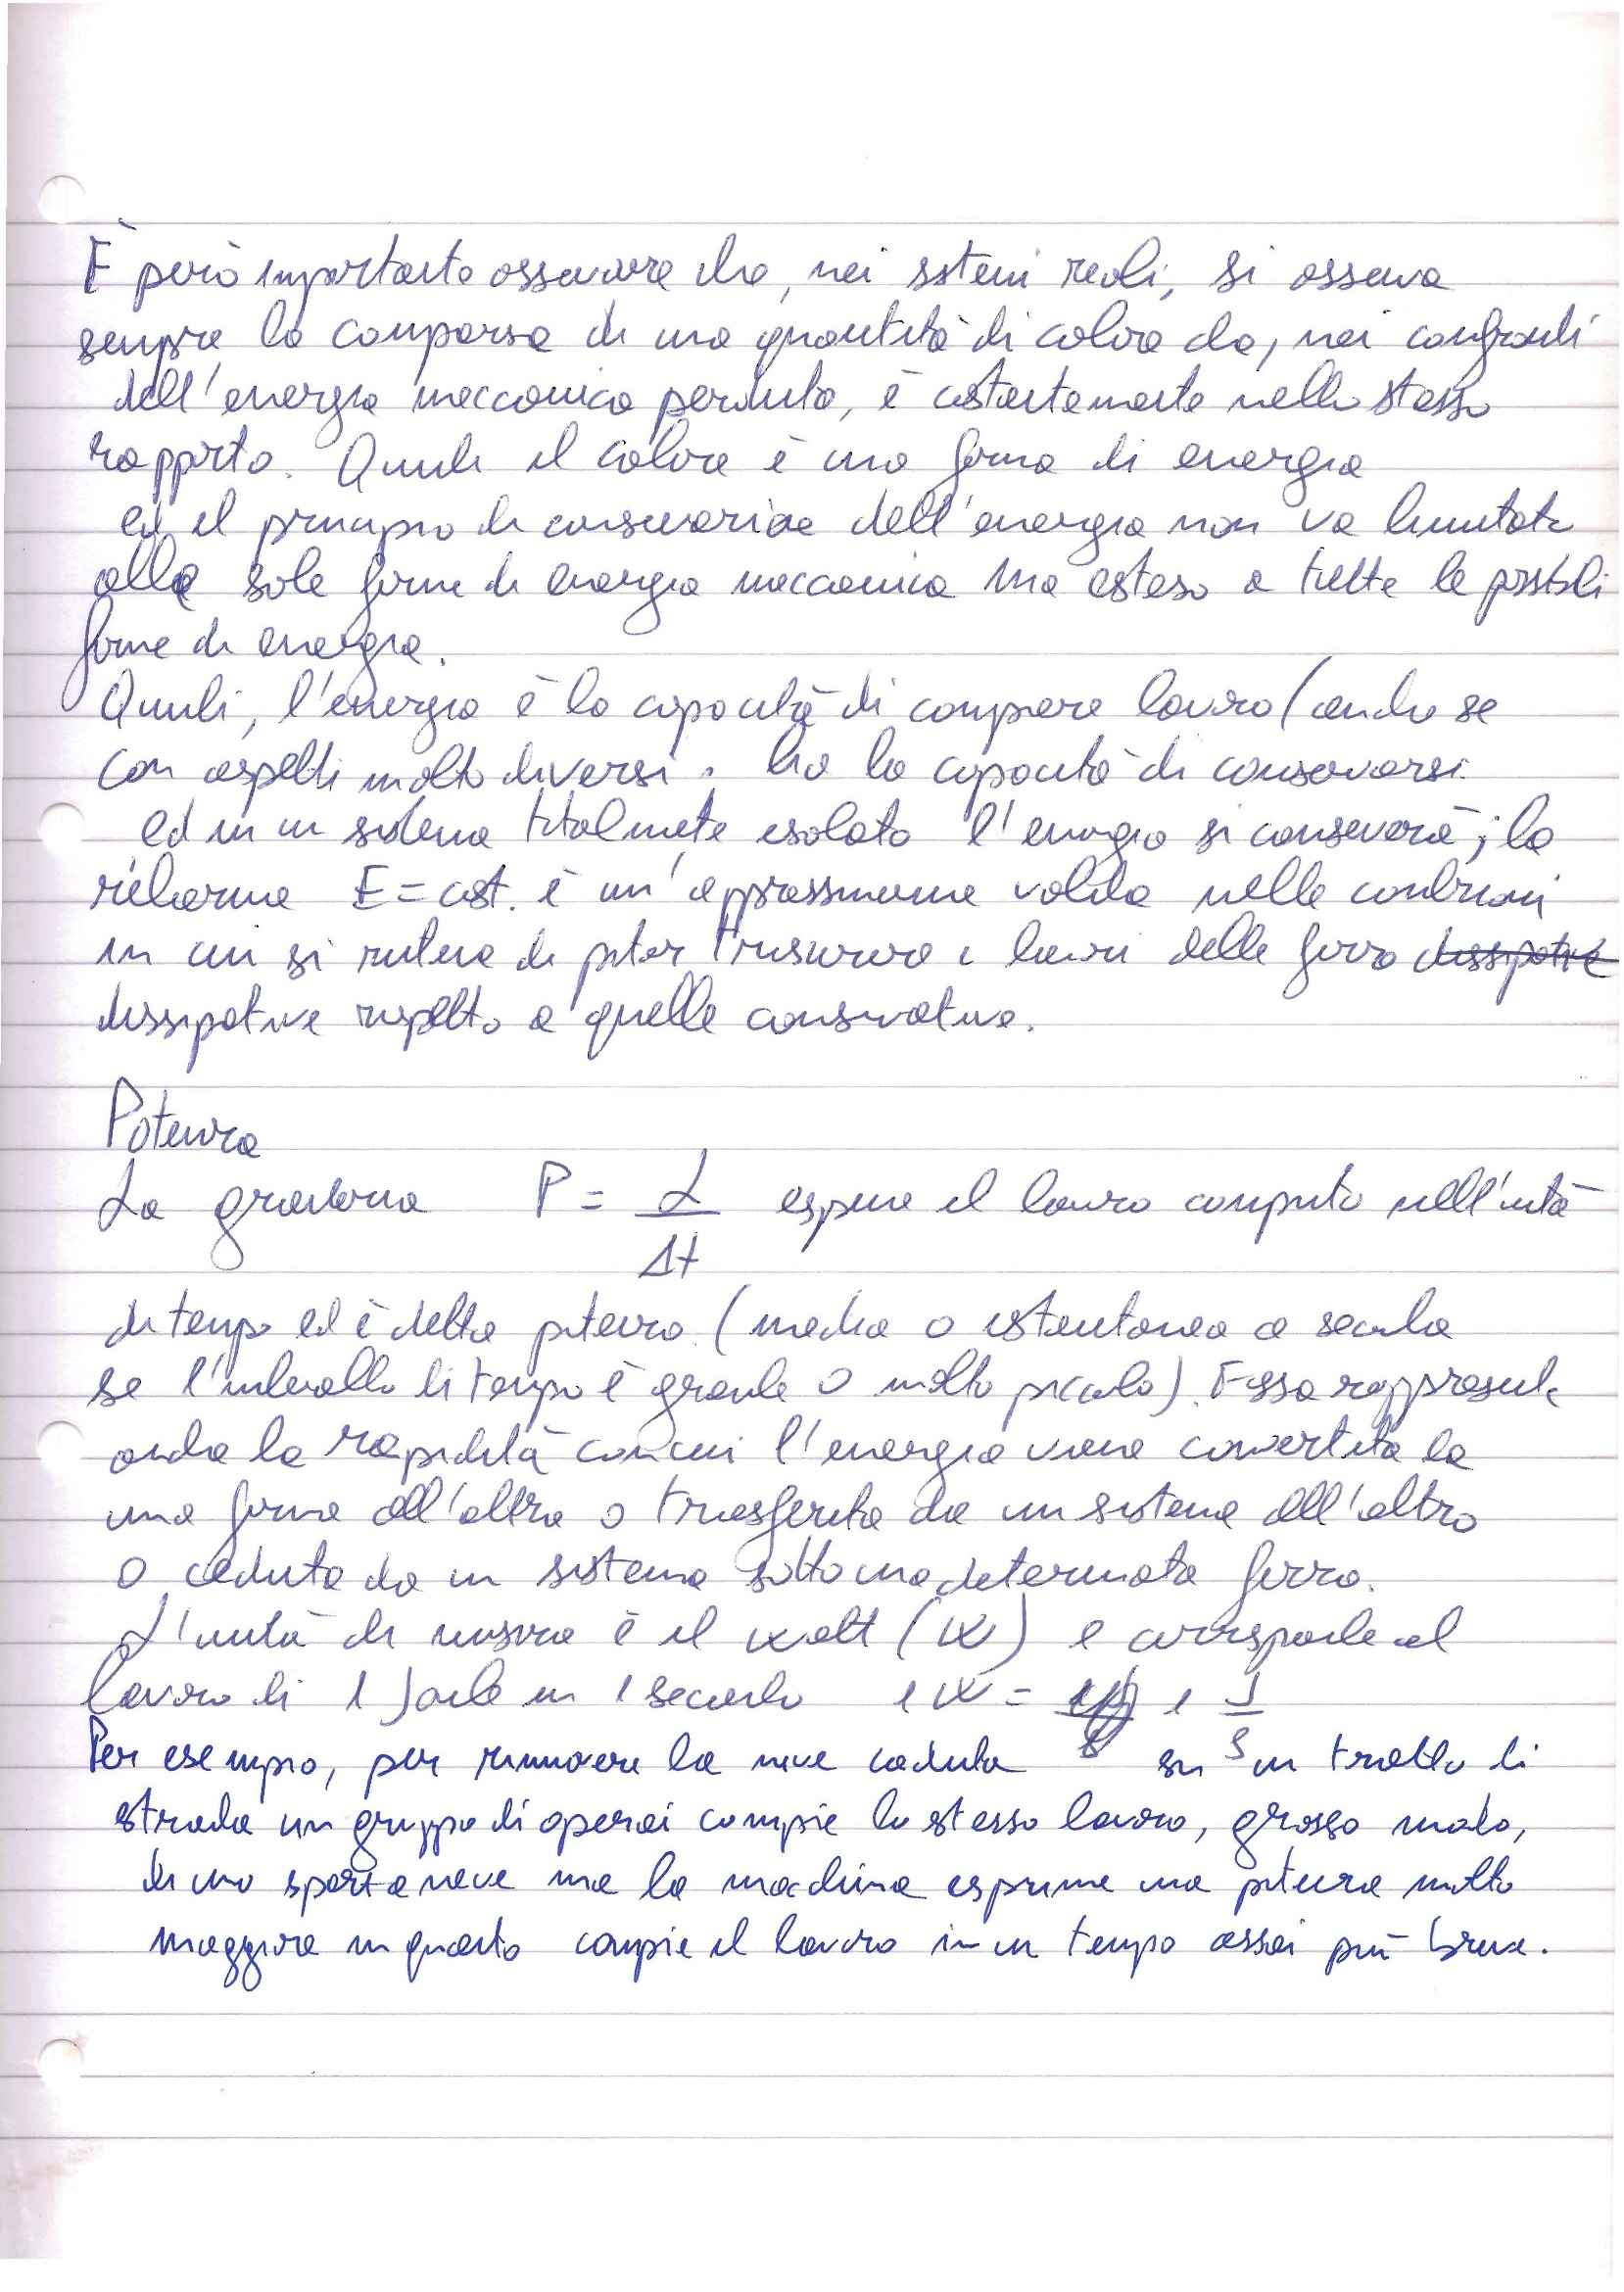 È però importante osservare che, nei sistemi reali, si osserva
sempre la comparsa di una quantità di calore che, nei confronti
dell'energia meccanica perduta, è costantemente nello stesso
rapporto. Quindi il calore è una forma di energia
ed il principio di conservazione dell'energia non va limitato
alle sole forme di energia meccanica ma esteso a tutte le possibili
forme di energia.
Quindi, l'energia è la capacità di compiere lavoro (anche se
con aspetti molto diversi. ha la capacità di conservarsi
ed in un sistema totalmente isolato l'energia si conserverà; la
relazione E = cost. è un'approssimazione valida nelle condizioni
in cui si ritiene di poter trascurare i lavori delle forze dissipative
dissipative rispetto a quelle conservative.
Potenza
La grandezza P = L / Δt esprime il lavoro compiuto nell'unità
di tempo ed è detta potenza (media o istantanea a seconda
se l'intervallo di tempo è grande o molto piccolo). Essa rappresenta
anche la rapidità con cui l'energia viene convertita da
una forma all'altra o trasferita da un sistema all'altro
o ceduta da un sistema sotto una determinata forza.
L'unità di misura è il watt (W) e corrisponde al
lavoro di 1 Joule in 1 secondo 1 W = 1 J / s
Per esempio, per rimuovere la neve caduta su un tratto di
strada un gruppo di operai compie lo stesso lavoro, grosso modo,
di uno spartaneve ma la macchina esprime una potenza molto
maggiore in quanto compie il lavoro in un tempo assai più breve.